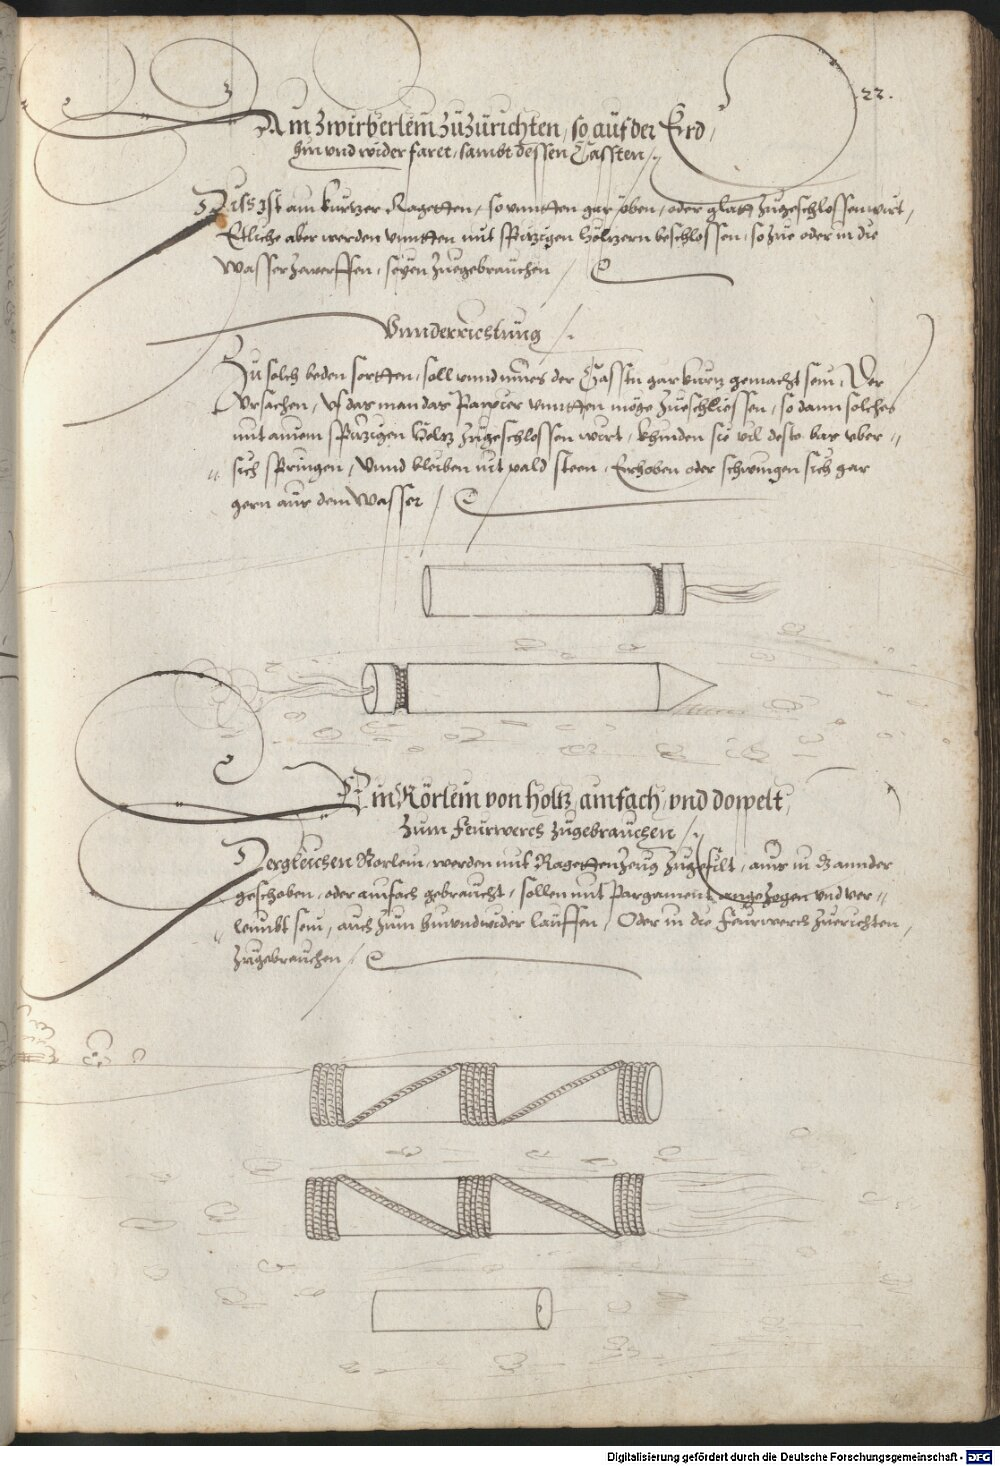 22.
Ain Zwirberlein zuzürichten, so auf der Erd,
hin und wider faret, sambt dessen Cassten
Diss ist ain kurtzer Ragetten, so unntten gar oben, oder glatt zugeschlossen wirt,
Etliche aber werden unntten mit spitzigen höltzern beschlossen, so zue oder in die
Wasser zewerffen, seyen zuegebrauchen
Unnderrichtung
Zu solch beden sortten, soll innd der Casstn gar kurtz gemacht sein, Der
Ursachen, uf das man das Pappier unntten möge zueschliessen, so dann solches
mit ainem spitzigen holtz zugeschlossen wirt, khinden sie vil desto bas uber-
sich springen, unnd bleiben nit pald steen, Erhoben oder schwingen sich gar
gern aus dem Wasser
Ein Rörlein von holtz, ainfach, und dopelt,
Zum feurwerch zugebrauchen
Dergleichen Rorlein, werden mit Ragetten Zeug zugefilt, ains in das annder
geschoben, oder ainfach gebraucht, sollen mit Pargament angezogen und ver-
leimbt sein, auch zum hin und wider lauffen, Oder in die feurwerch zuerichten,
Zugebrauchen
Digitalisierung gefördert durch die Deutsche Forschungsgemeinschaft - DFG